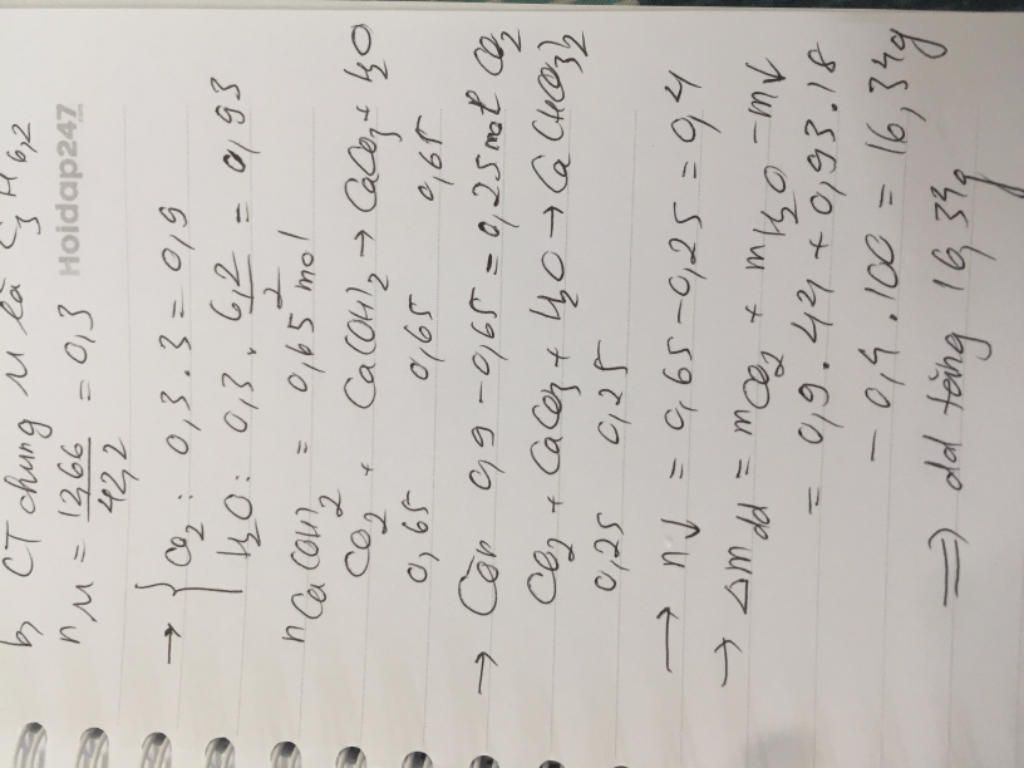 b, CT chung M là C3H6,2
Hoidap247
nM = 12,66 / 42,2 = 0,3
→ { CO2 : 0,3 . 3 = 0,9
H2O : 0,3 . 6,2 / 2 = 0,93
nCa(OH)2 = 0,65 mol
CO2 + Ca(OH)2 → CaCO3 + H2O
0,65 0,65 0,65
→ Còn 0,9 - 0,65 = 0,25 mol CO2
CO2 + CaCO3 + H2O → Ca(HCO3)2
0,25 0,25
→ n↓ = 0,65 - 0,25 = 0,4
→ Δm dd = mCO2 + mH2O - m↓
= 0,9 . 44 + 0,93 . 18
- 0,4 . 100 = 16,34g
=> dd tăng 16,34g